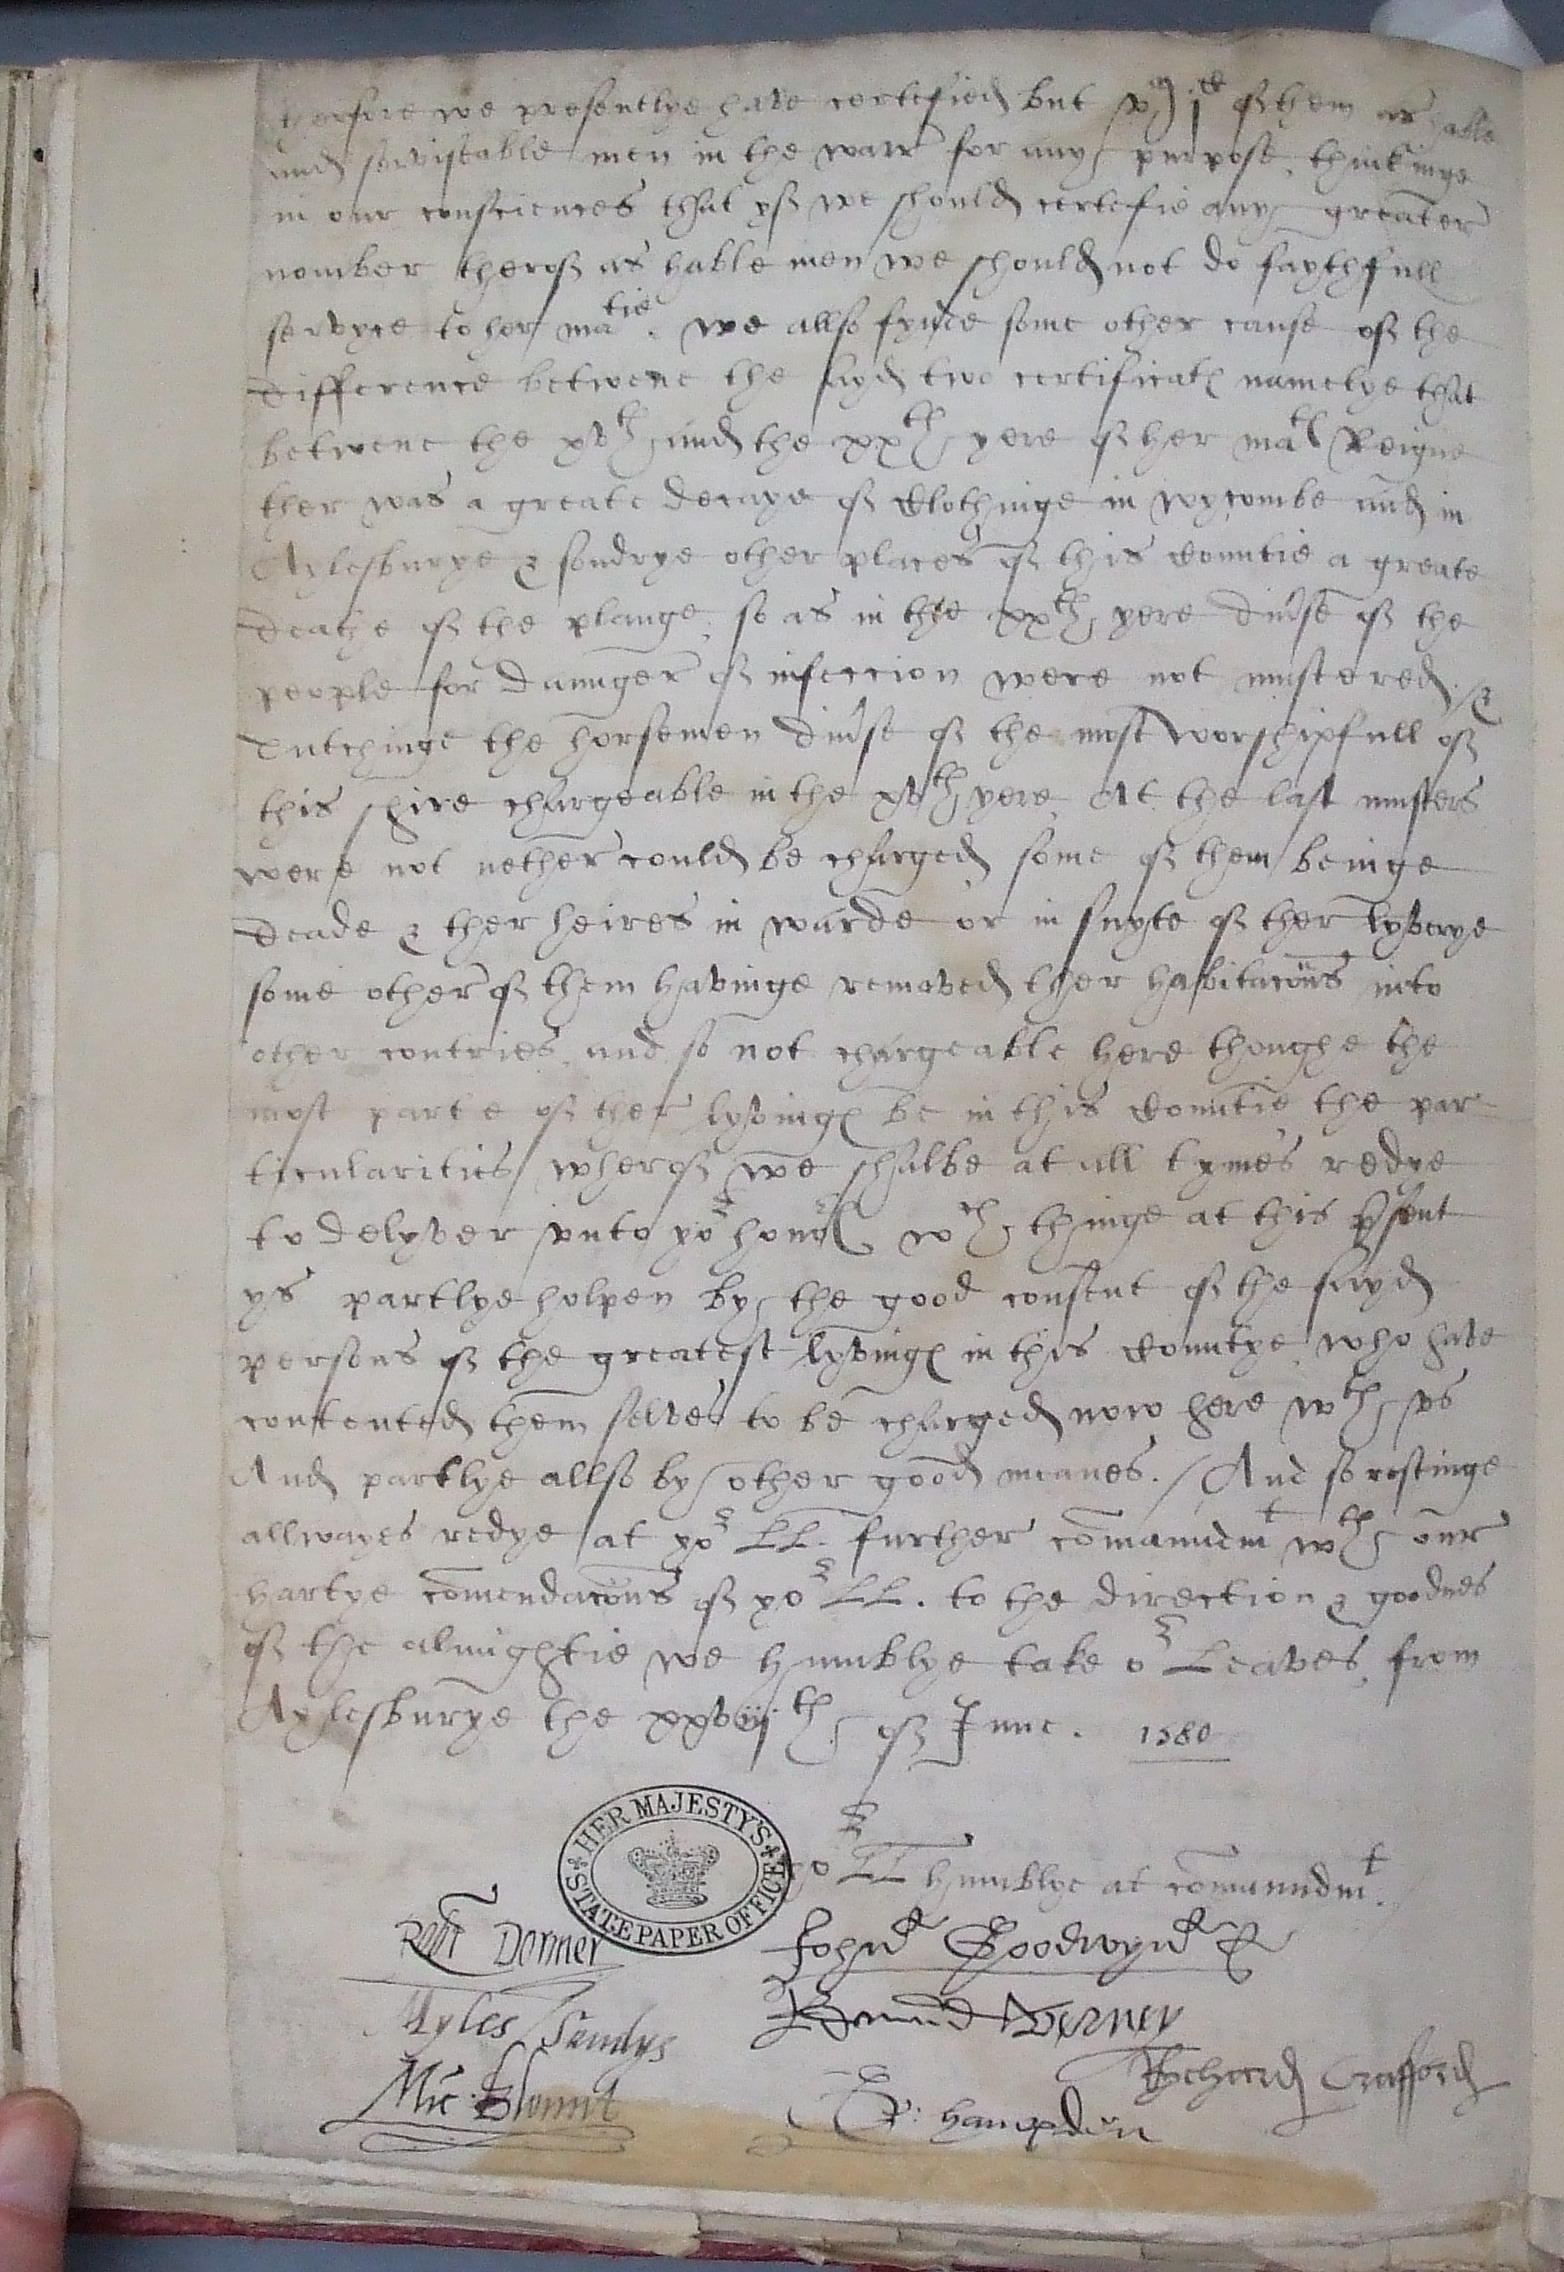 therfore we presentlye have certefied but of them as hable
and servistable men in the warr for any purpose, thinkinge
in our consciences that yf we should certefie any greater
nomber therof as hable men we should not do faythfull
servyce to her matie. We allso fynde some other cause of the
difference betwene the sayd two certificates namelye that
betwene the xvth and the xxth yere of her mats Reigne
ther was a greate decaye of Clothinge in wycombe and in
Aylesburye & sondrye other places of this Countie a greate
deathe of the plauge, so as in the xxth yere diverse of the
people for daunger of infeccion were not mustered./ &
Tutchinge the horsemen diverse of the most worshipfull of
this shire chargeable in the xvth yere, At the last musters
were not nether could be charged some of them beinge
deade & ther heires in warde or in suyte of ther lyverye
some other of them havinge removed ther habitacons into
other contries, and so not chargeable here thoughe the
most parte of ther lyvinges be in this Countie the par
ticularities wherof we shalbe at all tymes redye
to delyver unto yor honors wch thinge at this psent
ys partlye holpen by the good consent of the sayd
persons of the greatest lyvinges in this Countye, who have
contented them selves to be charged now here wth us
And partlye allso by other good meanes./ And so restinge
allwayes redye at yor LL. further comaundmt wth our
hartye comendacons of yor LL. to the direction & goodnes
of the almightie we humblye take or Leaves, from
Aylesburye the xxviijth of June. 1580
yor LL humblye at comaundmt.
HER MAJESTY'S
STATE PAPER OFFICE
Robt Dormer John Goodwyn
Myles Sandys Edmund Verney
Mic: Blount Gr: Hampden